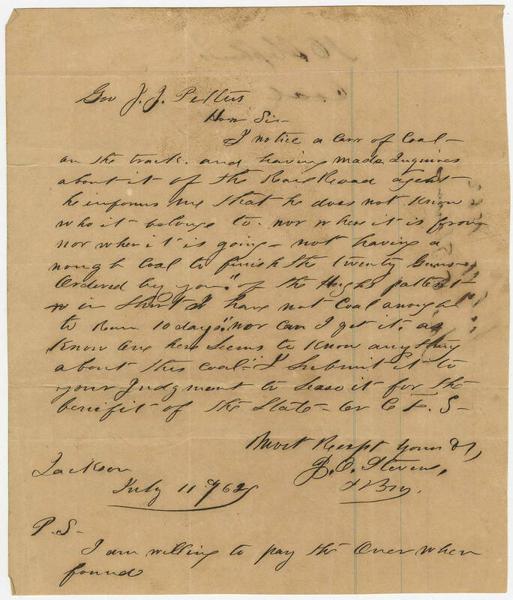 Gov J. J. Pettus
Hon Sir
I notice a Carr of Coal
on the track. and having made Inquires
about it of the Rail Road agent
he informs me that he does not Know
who it belongs to. nor where it is from
nor where it is going - not having a
nough Coal to finish the twenty Guns
Ordered by you" of the Hughs pattent -
in Short I have not Coal anough
to Run 10 days" nor can I get it. as
know one here seems to know any thing
about this Coal" I Submit it to
your Judgment to Sease it for the
benifit of the State - or C. S.
Most Respt yours &c,
J. O. Stevens,
& Bro,
Jackson
July 11th /62
P. S.
I am willing to pay the Oner when
found